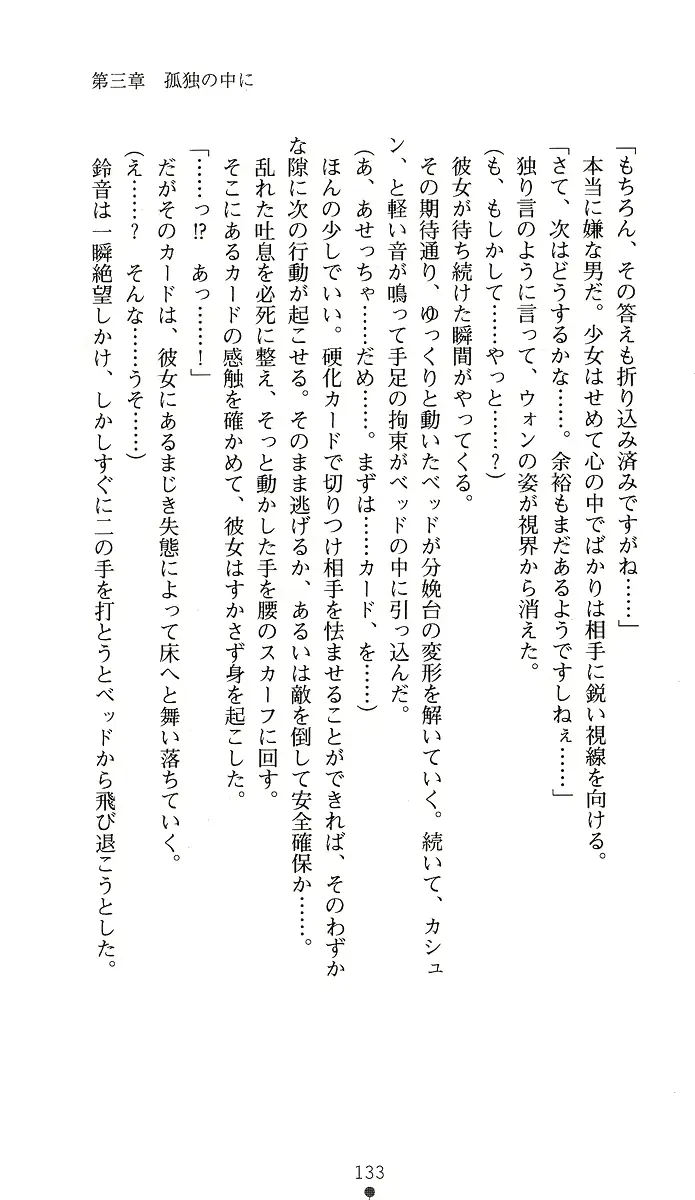 第三章　孤独の中に
「もちろん、その答えも折り込み済みですがね……」
本当に嫌な男だ。少女はせめて心の中でばかりは相手に鋭い視線を向ける。
「さて、次はどうするかな……。余裕もまだあるようですしねぇ……」
独り言のように言って、ウォンの姿が視界から消えた。
(も、もしかして……やっと……？)
彼女が待ち続けた瞬間がやってくる。
その期待通り、ゆっくりと動いたベッドが分娩台の変形を解いていく。続いて、カシュ
ン、と軽い音が鳴って手足の拘束がベッドの中に引っ込んだ。
(あ、あせっちゃ……だめ……。まずは……カード、を……)
ほんの少しでいい。硬化カードで切りつけ相手を怯ませることができれば、そのわずか
な隙に次の行動が起こせる。そのまま逃げるか、あるいは敵を倒して安全確保か……。
乱れた吐息を必死に整え、そっと動かした手を腰のスカーフに回す。
そこにあるカードの感触を確かめて、彼女はすかさず身を起こした。
「……っ!?　あっ……！」
だがそのカードは、彼女にあるまじき失態によって床へと舞い落ちていく。
(え……？　そんな……うそ……)
鈴音は一瞬絶望しかけ、しかしすぐに二の手を打とうとベッドから飛び退こうとした。
133